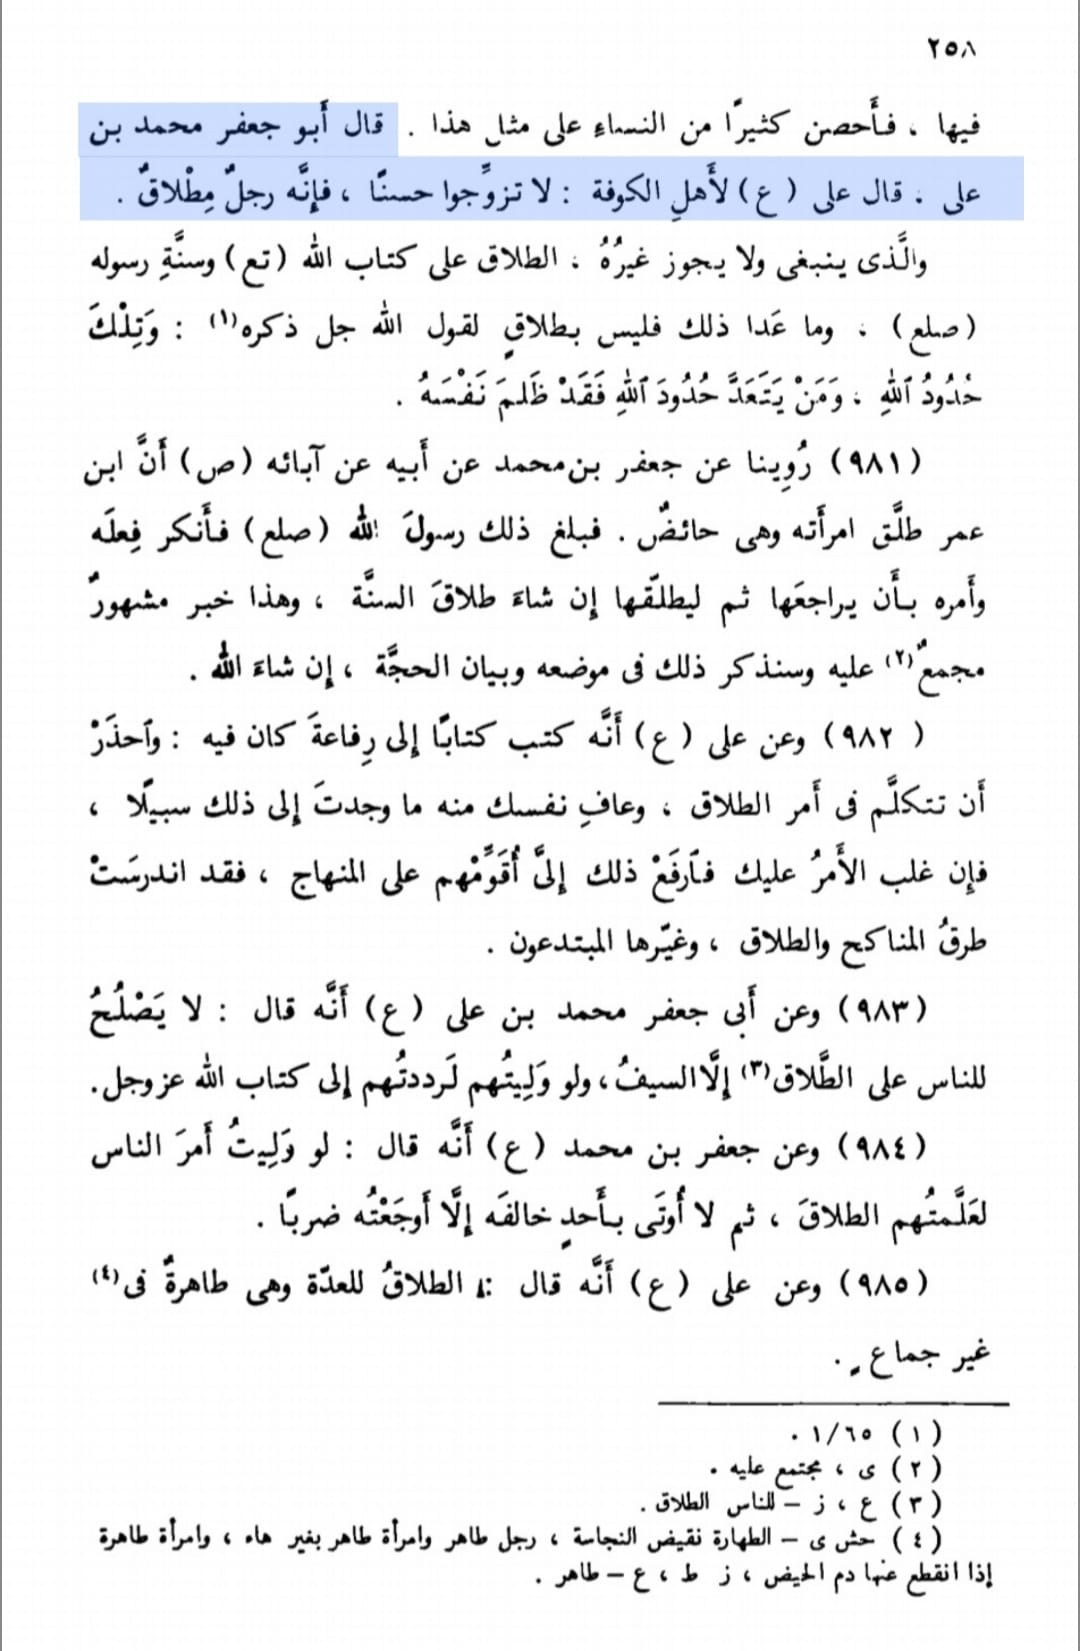 ٢٥٨
فيها ، فأَحصن كثيرًا من النساءِ على مثل هذا . قال أَبو جعفر محمد بن
على : قال على ( ع ) لأَهلِ الكوفة : لا تزوِّجوا حسنًا ، فإنَّه رجلٌ مِطْلاقٌ .
والَّذى ينبغى ولا يجوز غيرُهُ ، الطلاق على كتاب الله (تع) وسنَّةِ رسوله
(صلع) ، وما عَدا ذلك فليس بطلاقٍ لقول الله جل ذكره(١) : وَتِلْكَ
حُدُودُ ٱللهِ ، وَمَنْ يَتَعَدَّ حُدُودَ ٱللهِ فَقَدْ ظَلَمَ نَفْسَهُ .
(٩٨١) رُوِينا عن جعفر بن محمد عن أَبيه عن آبائه (ص) أَنَّ ابن
عمر طلَّق امرأَته وهى حائضٌ . فبلغ ذلك رسولَ الله (صلع) فأَنكر فِعلَه
وأَمره بأَن يراجعَها ثم ليطلّقها إن شاءَ طلاقَ السنَّة ، وهذا خبر مشهورٌ
مجمعٌ(٢) عليه وسنذكر ذلك فى موضعه وبيان الحجَّة ، إن شاءَ الله .
( ٩٨٢) وعن على (ع) أَنَّه كتب كتابًا إلى رِفاعةَ كان فيه : وٱحذَرْ
أَن تتكلَّم فى أَمر الطلاق ، وعافِ نفسك منه ما وجدتَ إلى ذلك سبيلًا ،
فإن غلب الأَمرُ عليك فٱرفَعْ ذلك إلىَّ أُقَوِّمْهم على المنهاج ، فقد اندرسَتْ
طرقُ المناكح والطلاق ، وغيّرها المبتدعون .
(٩٨٣) وعن أَبى جعفر محمد بن على (ع) أَنَّه قال : لا يَصْلُحُ
للناس على الطَّلاق(٣) إلَّا السيفُ، ولو وَلِيتُهم لَرددتُهم إلى كتاب الله عز وجل.
(٩٨٤) وعن جعفر بن محمد (ع) أَنَّه قال : لو وَلِيتُ أَمرَ الناس
لعَلَّمتُهم الطلاقَ ، ثم لا أُوتَى بأَحدٍ خالفَه إلَّا أَوجَعْتُه ضربًا .
(٩٨٥) وعن على (ع) أَنَّه قال : الطلاقُ للعدّة وهى طاهرةٌ فى(٤)
غير جماعٍ .
(١) ١/٦٥ .
(٢) ى ، مجتمع عليه .
(٣) ع ، ز – للناس الطلاق .
(٤) حش ى – الطهارة نقيض النجاسة ، رجل طاهر وامرأة طاهر بغير هاء ، وامرأة طاهرة
إذا انقطع عنها دم الحيض ، ز ط ، ع – طاهر .